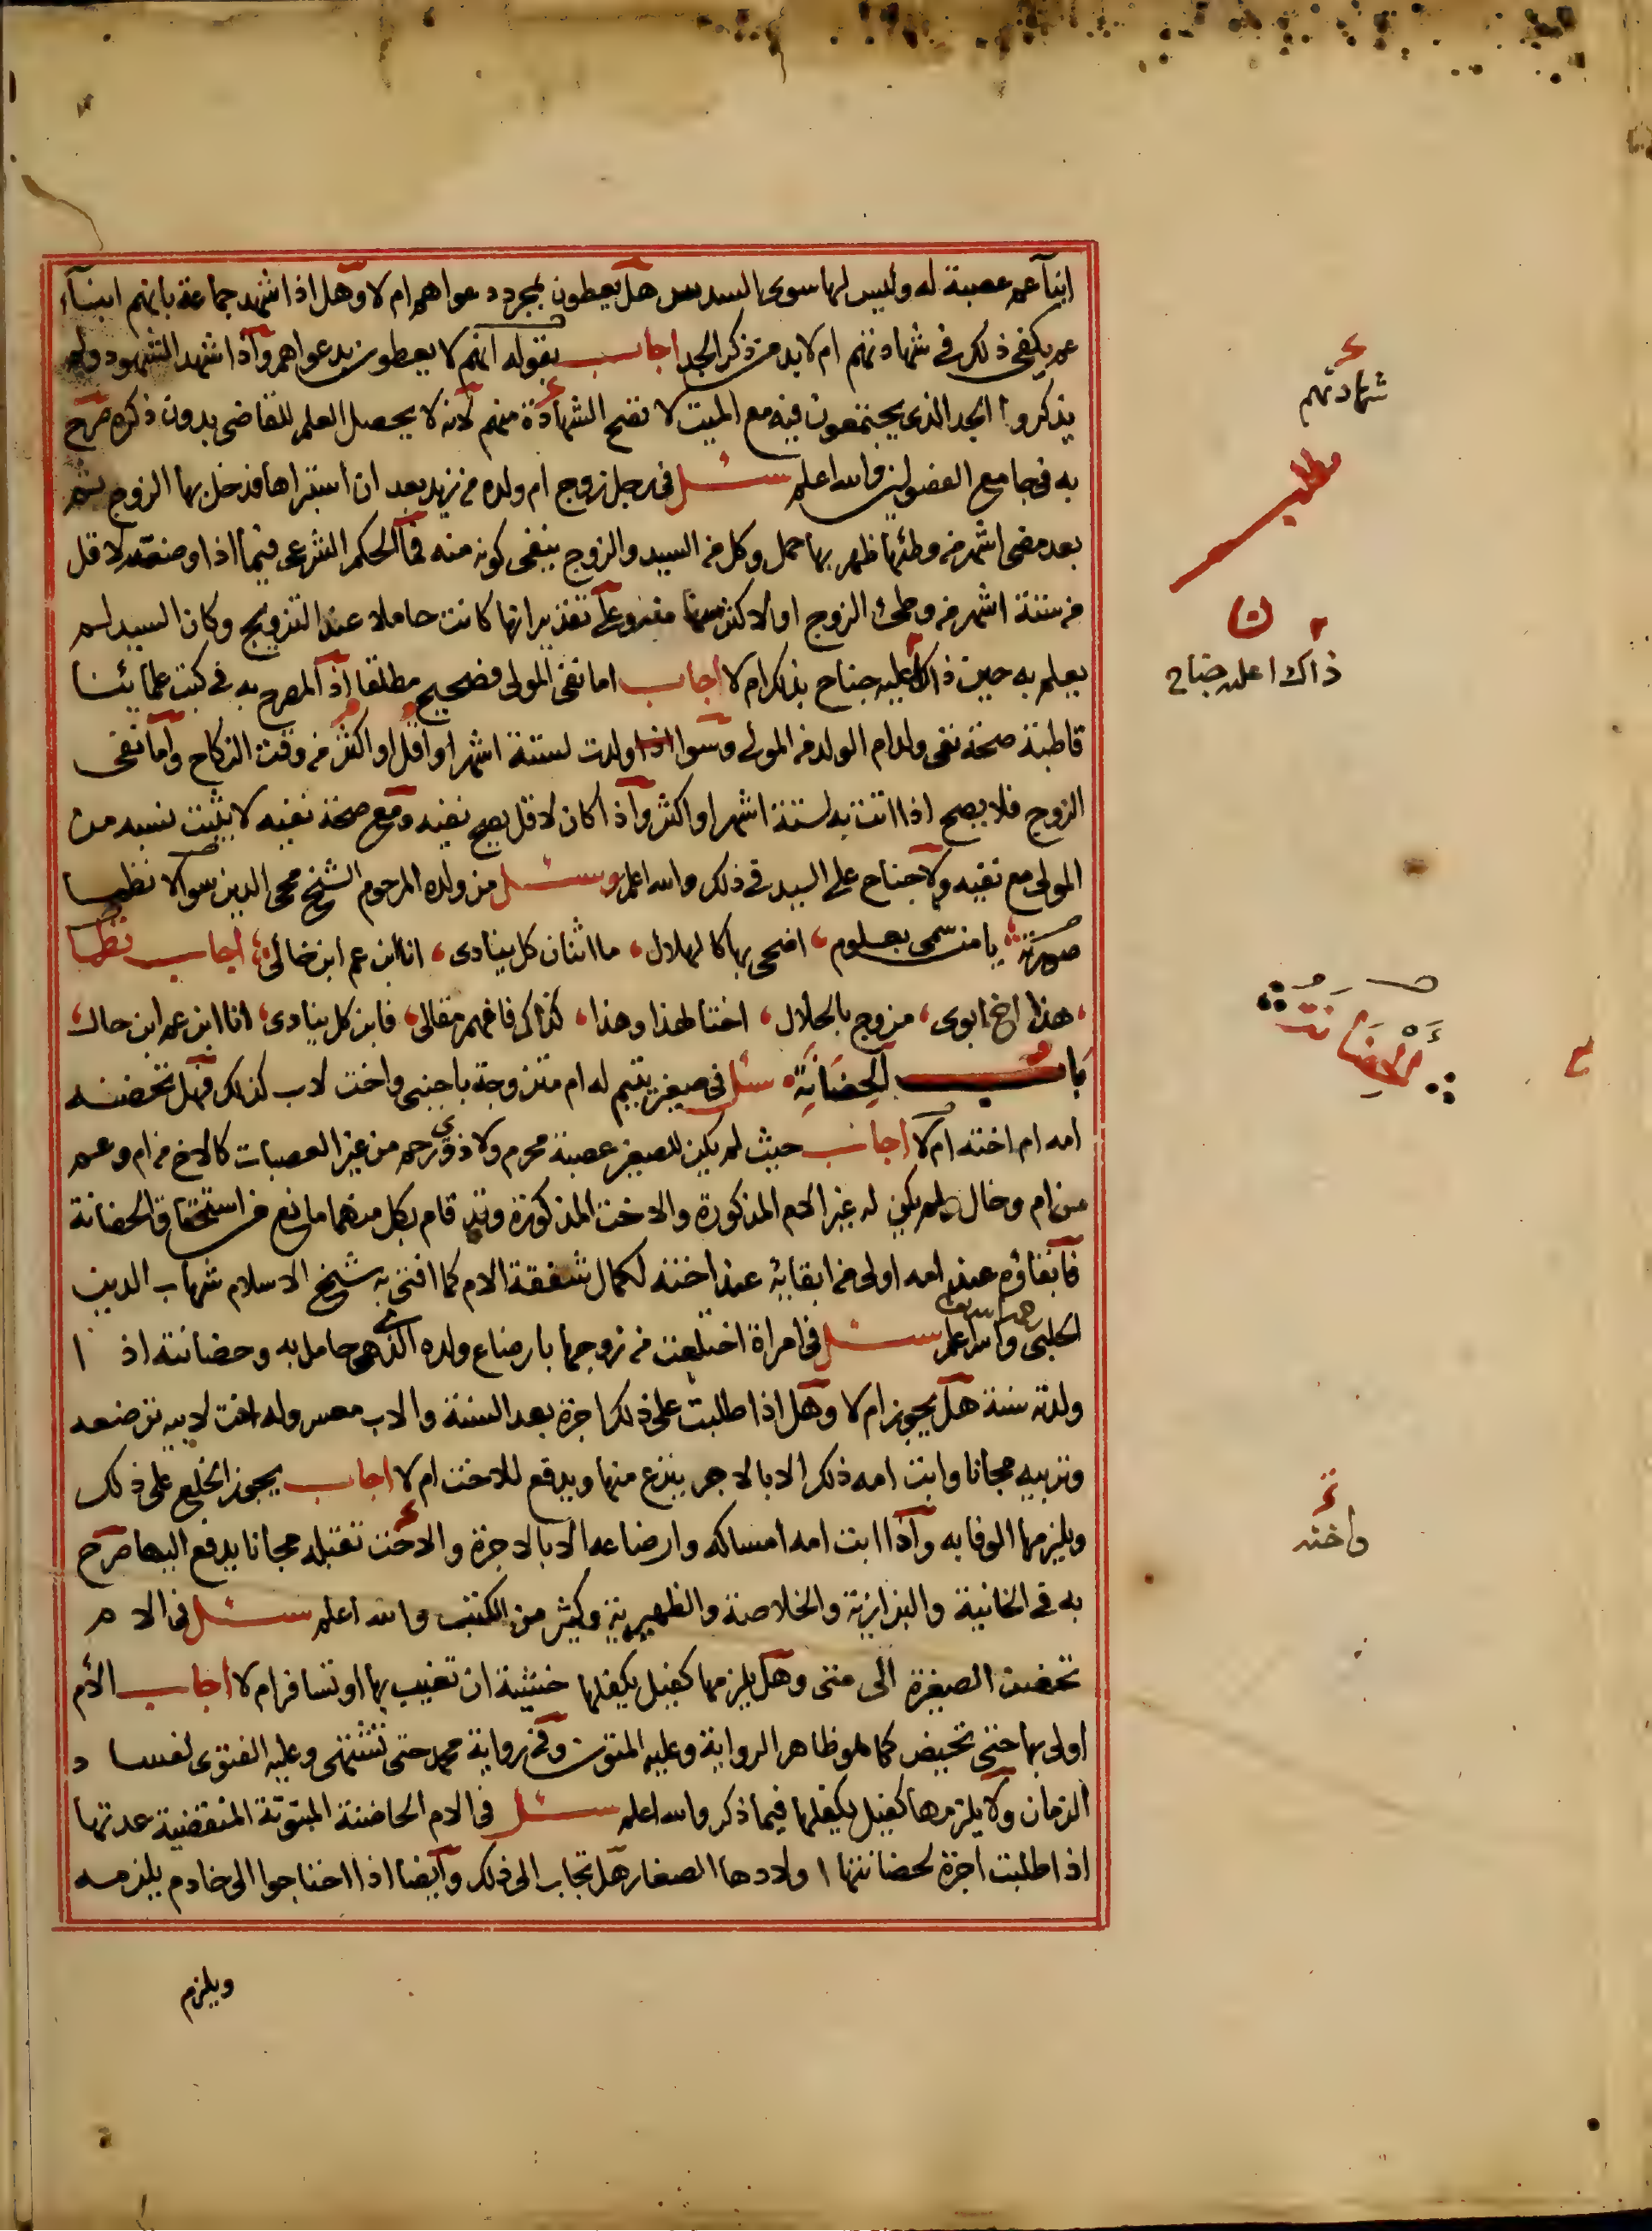 ابناء عمه عصبة له وليس لها سوى السدس هل يعطون بمجرد دعواهم ام لا وهل اذا شهد جماعة بانهم ابناء
عمه يكفي ذلك في شهادتهم ام لا بد من ذكر الجد اجاب بقوله انهم لا يعطون بدعواهم واذا شهد الشهود ولم
يذكروا الجد الذي يجتمعون فيه مع الميت لا تصح الشهادة منهم لانه لا يحصل العلم للقاضي بدون ذكره صرح
به في جامع الفصولين والله اعلم سئل في رجل زوج ام ولده من زيد بعد ان استبراها فدخل بها الزوج ثم
بعد مضى اشهر من وطئها ظهر بها حمل وكل من السيد والزوج ينفى كونه منه فما الحكم الشرعى فيما اذا وضعته لاقل
من ستة اشهر من وطئ الزوج او لاكثر منها وعلى تقدير انها كانت حاملا عند التزويج وكان السيد لم
يعلم به حين ذاك اعليه جناح بذلك ام لا اجاب اما نفى المولى فصحيح مطلقا اذ المصرح به في كتب علمائنا
قاطبة صحة نفى ولد ام الولد من المولى وسوا اذا ولدت لستة اشهر او اقل او اكثر من وقت النكاح واما نفى
الزوج فلا يصح اذا اتت به لستة اشهر او اكثر واذا كان لاقل يصح نفيه ومع صحة نفيه لا يثبت نسبه من
المولى مع نفيه ولا جناح على السيد في ذلك والله اعلم وسئل من ولده المرحوم الشيخ محي الدين سوالا نظما
صورته يا من سمى بعلوم، اضحى بها كالهلال، ما اثنان كل ينادى، انا ابن عم ابن خالى، اجاب نظما
، هذا اخ ابوى، مزوج بالحلال، اختا لهذا وهذا، كذاك فافهم مقالى، فابن كل ينادى، انا ابن عم ابن خال،
باب الحضانة سئل في صغير يتيم له ام متزوجة باجنبى واخت لاب كذلك فهل تحضنه
امه ام اخته ام لا اجاب حيث لم يكن للصغير عصبة محرم ولا ذوي رحم من غير العصبات كالاخ من ام وعم
من ام وخال ولم يكن له غير الام المذكورة والاخت المذكورة وقد قام بكل منهما مانع من استحقاق الحضانة
فابقاؤه عند امه اولى من ابقائه عند اخته لكمال شفقة الام كما افتى به شيخ الاسلام شهاب الدين
الحلبى رحمه الله تعالى والله اعلم سئل في امراة اختلعت من زوجها بارضاع ولده الذي هي حامل به وحضانته اذا
ولدته سنة هل يجوز ام لا وهل اذا طلبت على ذلك اجرة بعد السنة والاب معسر وله اخت لابيه ترضعه
وتربيه مجانا وابت امه ذلك الا بالاجر ينزع منها ويدفع للاخت ام لا اجاب يجوز الخلع على ذلك
ويلزمها الوفا به واذا ابت امه امساكه وارضاعه الا بالاجرة والاخت تقبله مجانا يدفع اليها صرح
به في الخانية والبزازية والخلاصة والظهيرية وكثير من الكتب والله اعلم سئل في الام
تحضن الصغيرة الى متى وهل يلزمها كفيل يكفلها خشية ان تغيب بها او تسافر ام لا اجاب الام
اولى بها حتى تحيض كما هو ظاهر الرواية وعليه المتون وفي رواية محمد حتى تشتهى وعليه الفتوى لفساد
الزمان ولا يلزمها كفيل يكفلها فيما ذكر والله اعلم سئل في الام الحاضنة المبتوتة المنقضية عدتها
اذا طلبت اجرة لحضانتها اولادها الصغار هل تجاب الى ذلك وايضا اذا احتاجوا الى خادم يلزمه
ويلزم
شهادتهم
مطلب
ن
ذاك اعليه جناح
الحضانة
واخته